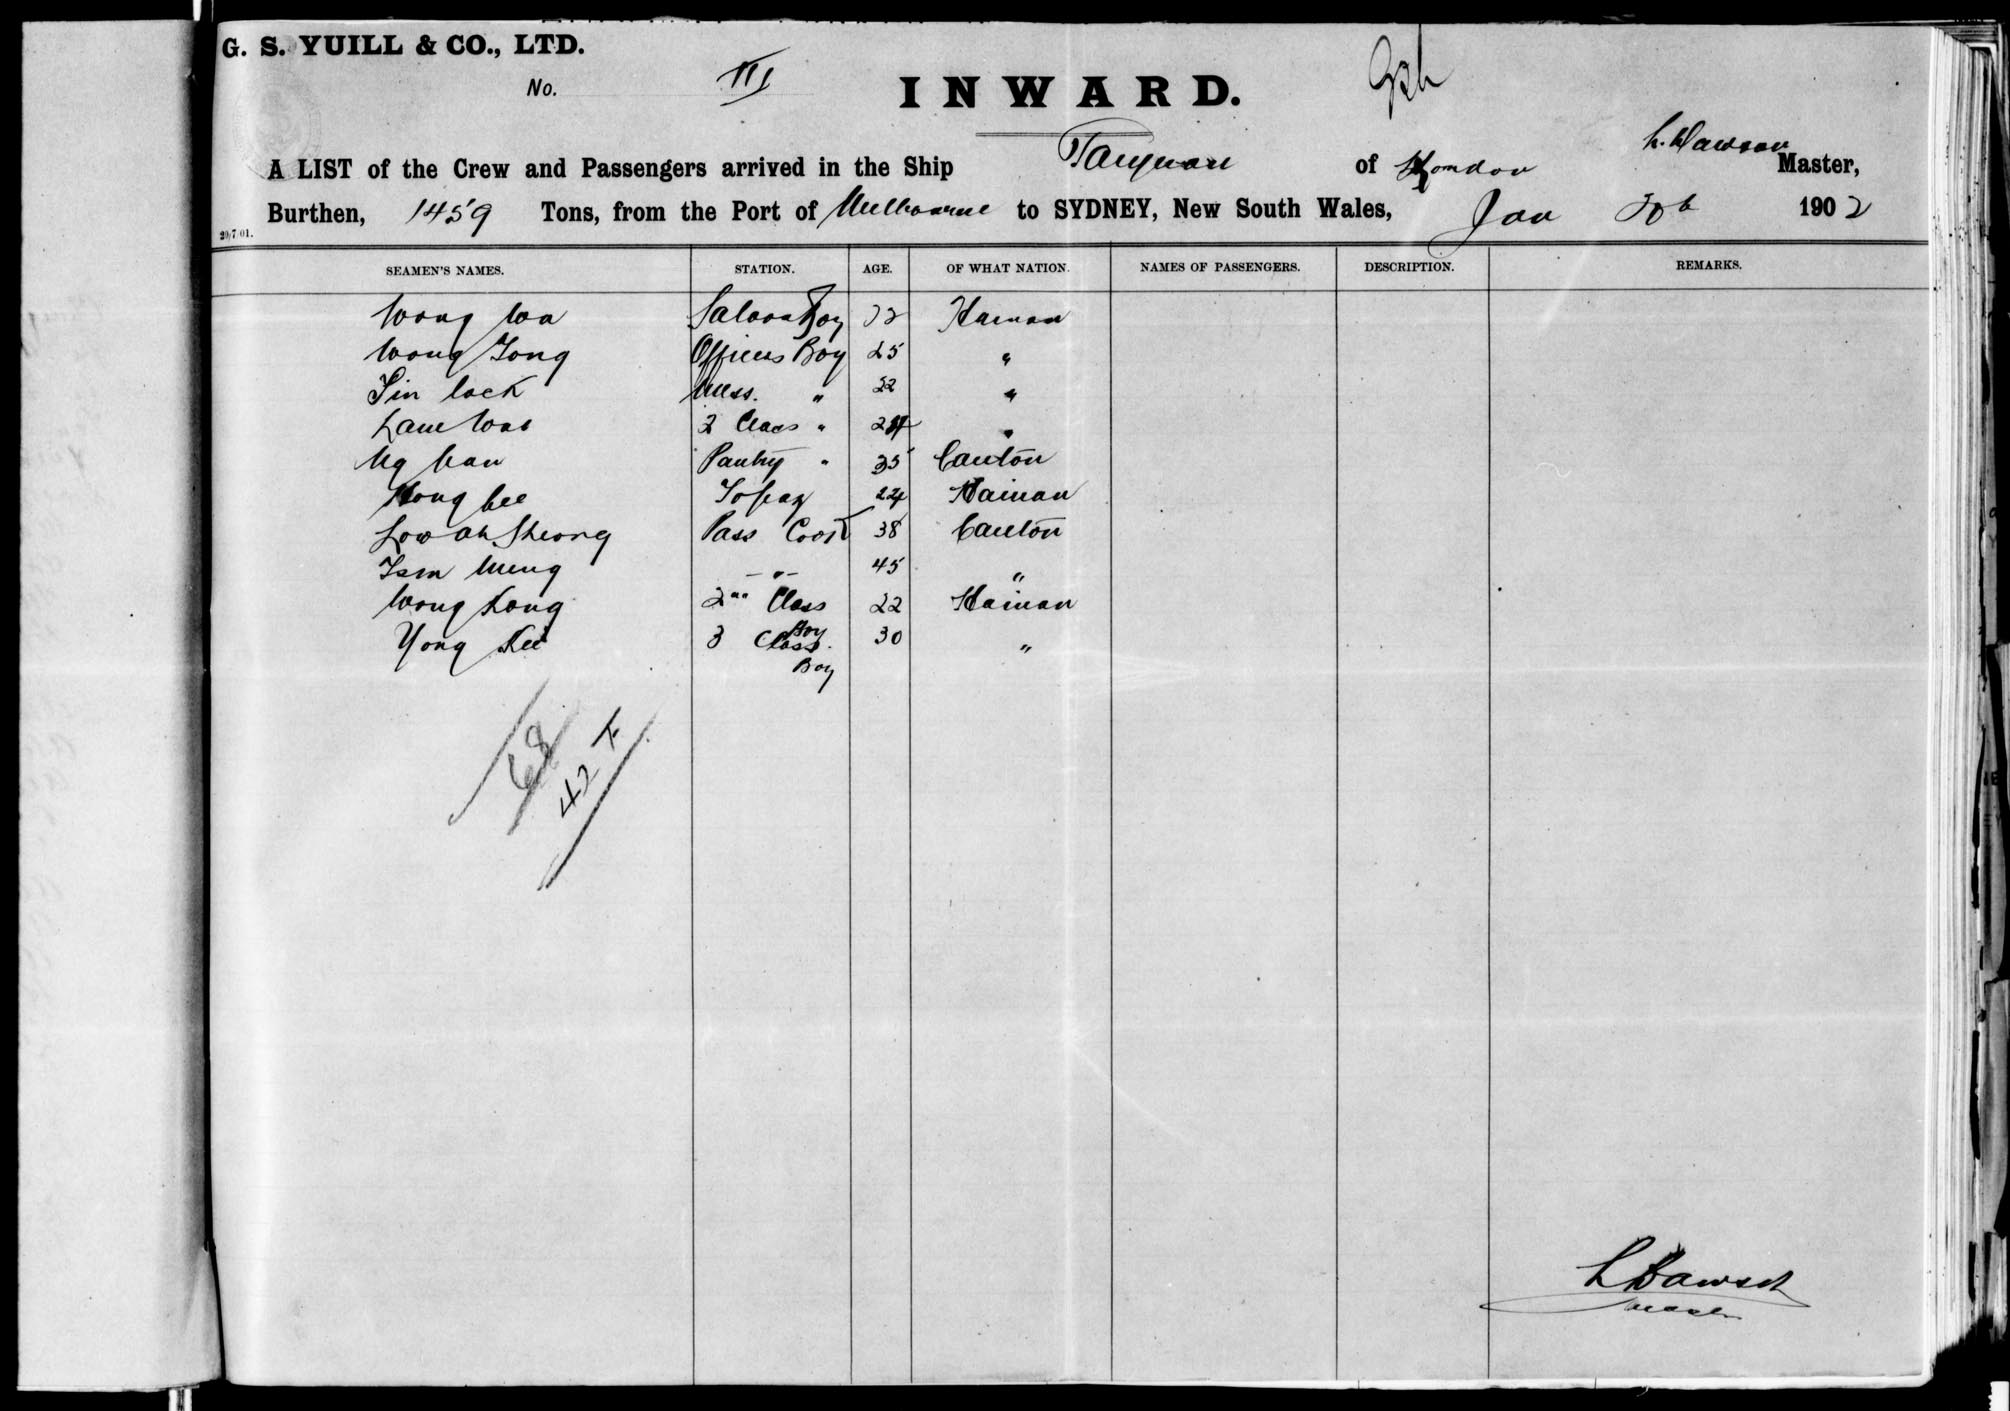 G. S. YUILL & CO., LTD.
No. III
INWARD.
L. Dawson
A LIST of the Crew and Passengers arrived in the Ship Taiyuan of London Master,
Burthen, 1459 Tons, from the Port of Melbourne to SYDNEY, New South Wales, Jan 1902
20/7/01.
SEAMEN'S NAMES. STATION. AGE. OF WHAT NATION. NAMES OF PASSENGERS. DESCRIPTION. REMARKS.
Wong Wa Saloon Boy Hainan
Wong Tong Officers Boy 25 "
Sin lock Mess. " 22 "
Lam Wah 2 Class " "
Ng Pantry " 35 Canton
Hong Topaz 24 Hainan
Low Ah Sheong Pass Cook 38 Canton
Meng - " - 45 "
Wong Kong 2nd Class 22 Hainan
Boy
Yong Kee 3 Class. 30 "
Boy
68
42
L Dawson
Master